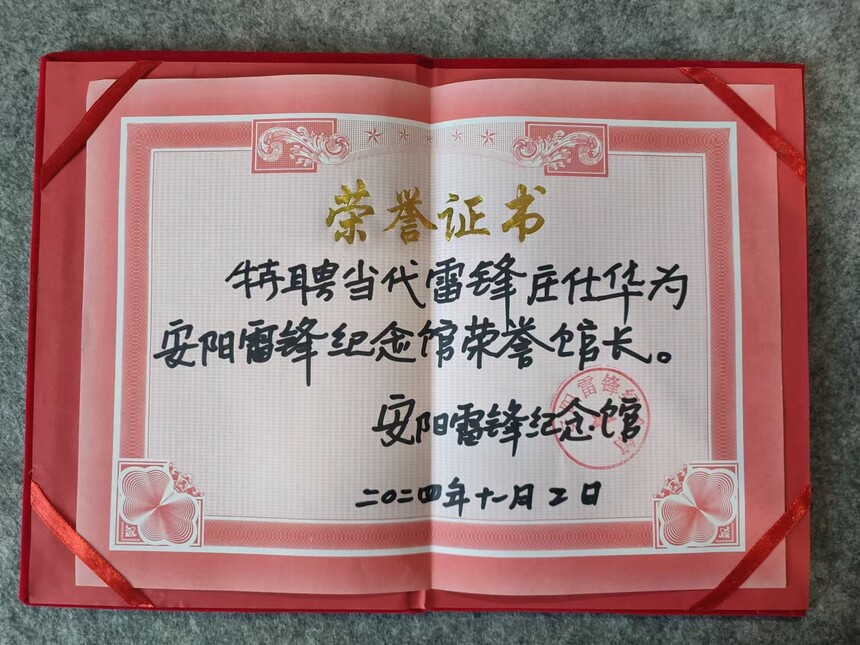 荣誉证书
特聘当代雷锋庄仕华为
安阳雷锋纪念馆荣誉馆长。
安阳雷锋纪念馆
二〇二四年十一月二日